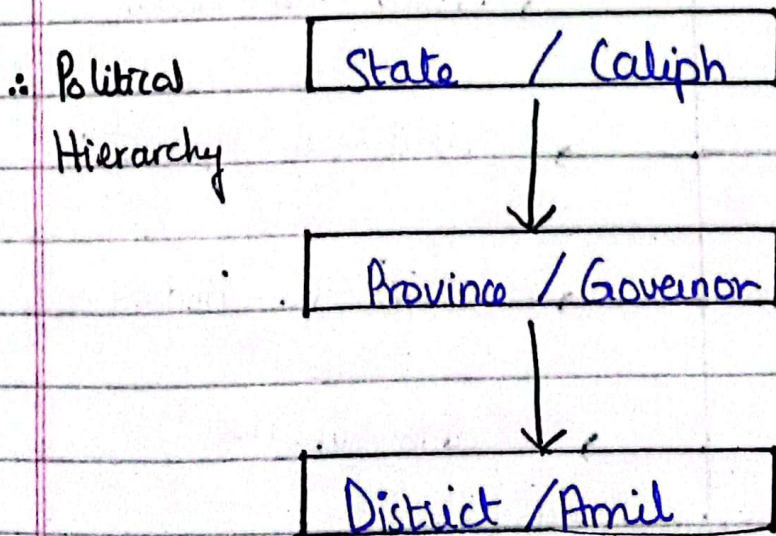 ∴ Political
Hierarchy
State / Caliph
Province / Governor
District / Amil